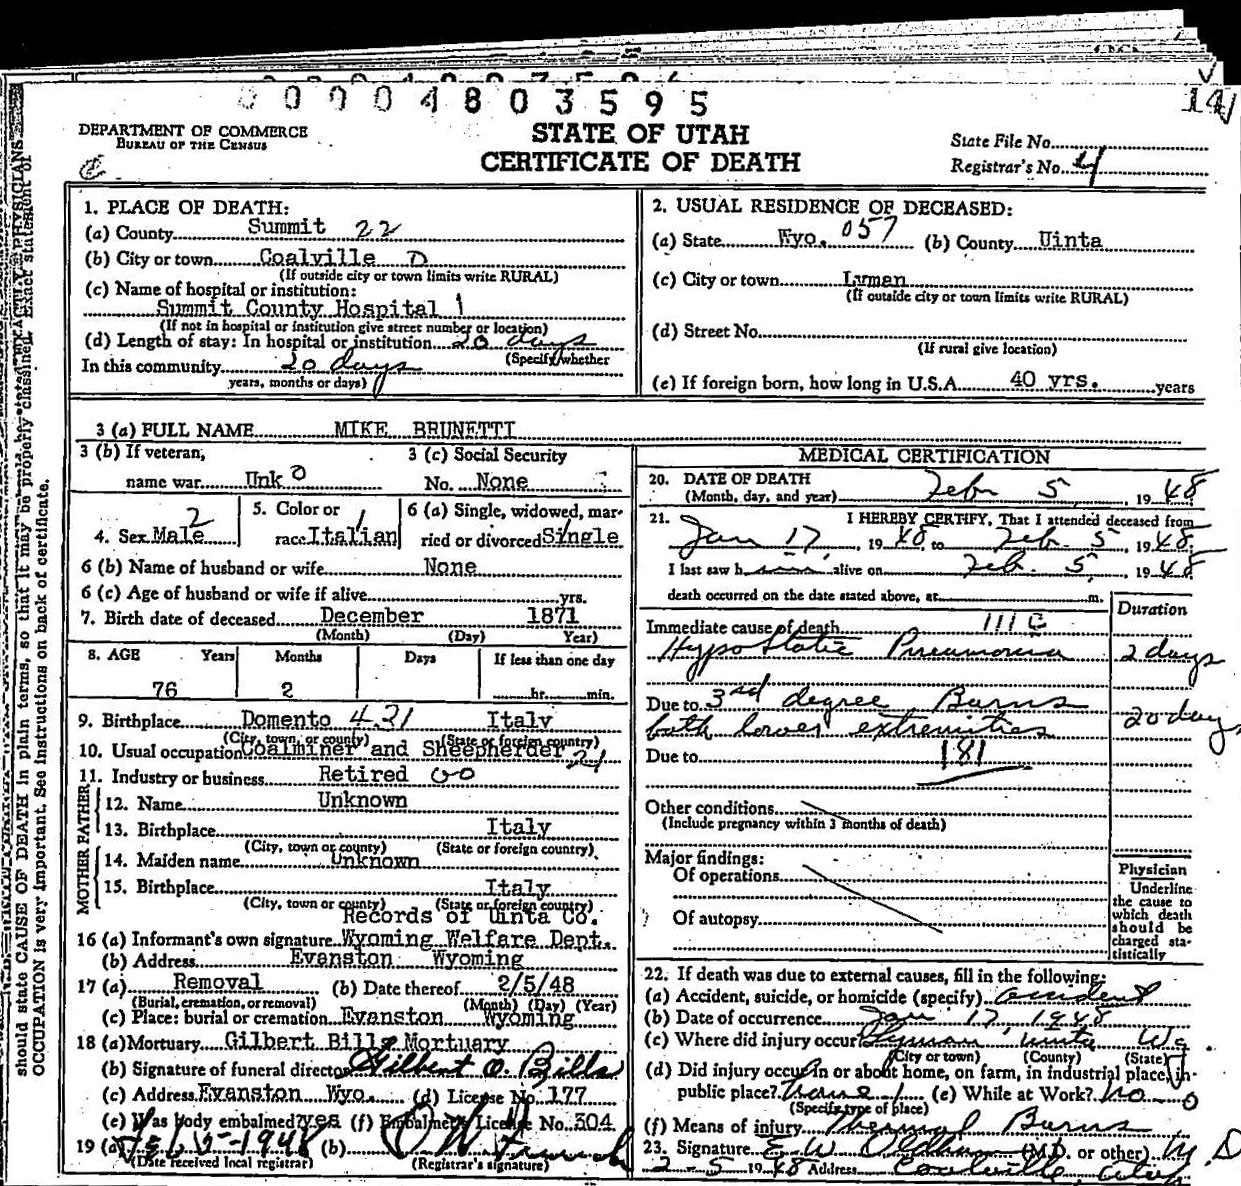 00004803595
14
DEPARTMENT OF COMMERCE
BUREAU OF THE CENSUS
STATE OF UTAH
CERTIFICATE OF DEATH
State File No.
Registrar's No. 4
should state CAUSE OF DEATH in plain terms, so that it may be properly classified. Exact statement of
OCCUPATION is very important. See instructions on back of certificate.
1. PLACE OF DEATH:
(a) County Summit 22
(b) City or town Coalville D
(If outside city or town limits write RURAL)
(c) Name of hospital or institution:
Summit County Hospital 1
(If not in hospital or institution give street number or location)
(d) Length of stay: In hospital or institution 20 days
(Specify whether
In this community 20 days
years, months or days)
2. USUAL RESIDENCE OF DECEASED:
(a) State Wyo. 057 (b) County Uinta
(c) City or town Lyman
(If outside city or town limits write RURAL)
(d) Street No.
(If rural give location)
(e) If foreign born, how long in U.S.A. 40 yrs. years
3 (a) FULL NAME MIKE BRUNETTI
3 (b) If veteran,
name war Unk 0
3 (c) Social Security
No. None
4. Sex Male 2
5. Color or
race Italian 1
6 (a) Single, widowed, mar-
ried or divorced Single 1
6 (b) Name of husband or wife None
6 (c) Age of husband or wife if alive yrs.
7. Birth date of deceased December 1871
(Month) (Day) Year)
8. AGE Years Months Days If less than one day
76 2 hr. min.
9. Birthplace Domento 431 Italy
(City, town, or county) (State or foreign country)
10. Usual occupation Coalminer and Sheepherder 21
11. Industry or business Retired 00
FATHER
12. Name Unknown
13. Birthplace Italy
(City, town or county) (State or foreign country)
MOTHER
14. Maiden name Unknown
15. Birthplace Italy
(City, town or county) (State or foreign country)
Records of Uinta Co.
16 (a) Informant's own signature Wyoming Welfare Dept.
(b) Address Evanston Wyoming
17 (a) Removal (b) Date thereof 2/5/48
(Burial, cremation, or removal) (Month) (Day) (Year)
(c) Place: burial or cremation Evanston Wyoming
18 (a) Mortuary Gilbert Bills Mortuary
(b) Signature of funeral director Gilbert O. Bills
(c) Address Evanston Wyo. (d) License No. 177
(e) Was body embalmed? yes (f) Embalmer's License No. 304
19 (a) Feb 5-1948 (b) O W French
(Date received local registrar) (Registrar's signature)
MEDICAL CERTIFICATION
20. DATE OF DEATH
(Month, day, and year) Feb 5, 1948
21. I HEREBY CERTIFY, That I attended deceased from
Jan 17, 1948 to Feb. 5, 1948
I last saw him alive on Feb. 5, 1948
death occurred on the date stated above, at m.
Duration
Immediate cause of death 111 C
Hypostatic Pneumonia 2 days
Due to 3rd degree Burns
both lower extremities 20 days
Due to 181
Other conditions
(Include pregnancy within 3 months of death)
Major findings:
Of operations
Of autopsy
Physician
Underline
the cause to
which death
should be
charged sta-
tistically
22. If death was due to external causes, fill in the following:
(a) Accident, suicide, or homicide (specify) accident
(b) Date of occurrence Jan 17, 1948
(c) Where did injury occur? Lyman Uinta
(City or town) (County) (State)
(d) Did injury occur in or about home, on farm, in industrial place, in
public place? home 1 (e) While at Work? No 0
(Specify type of place)
(f) Means of injury Thermal Burns
23. Signature E. W. Oldham (M.D. or other) M.D
2-5 1948 Address Coalville, Utah